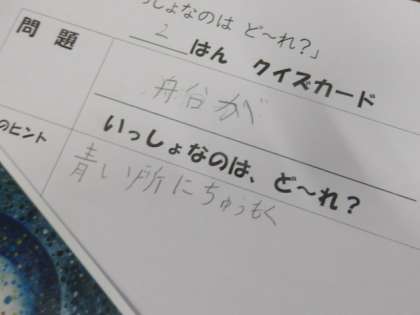 っしょなのは ど〜れ?」
2 はん クイズカード
問題
舟谷が
いっしょなのは、ど〜れ?
のヒント
青い所にちゅうもく